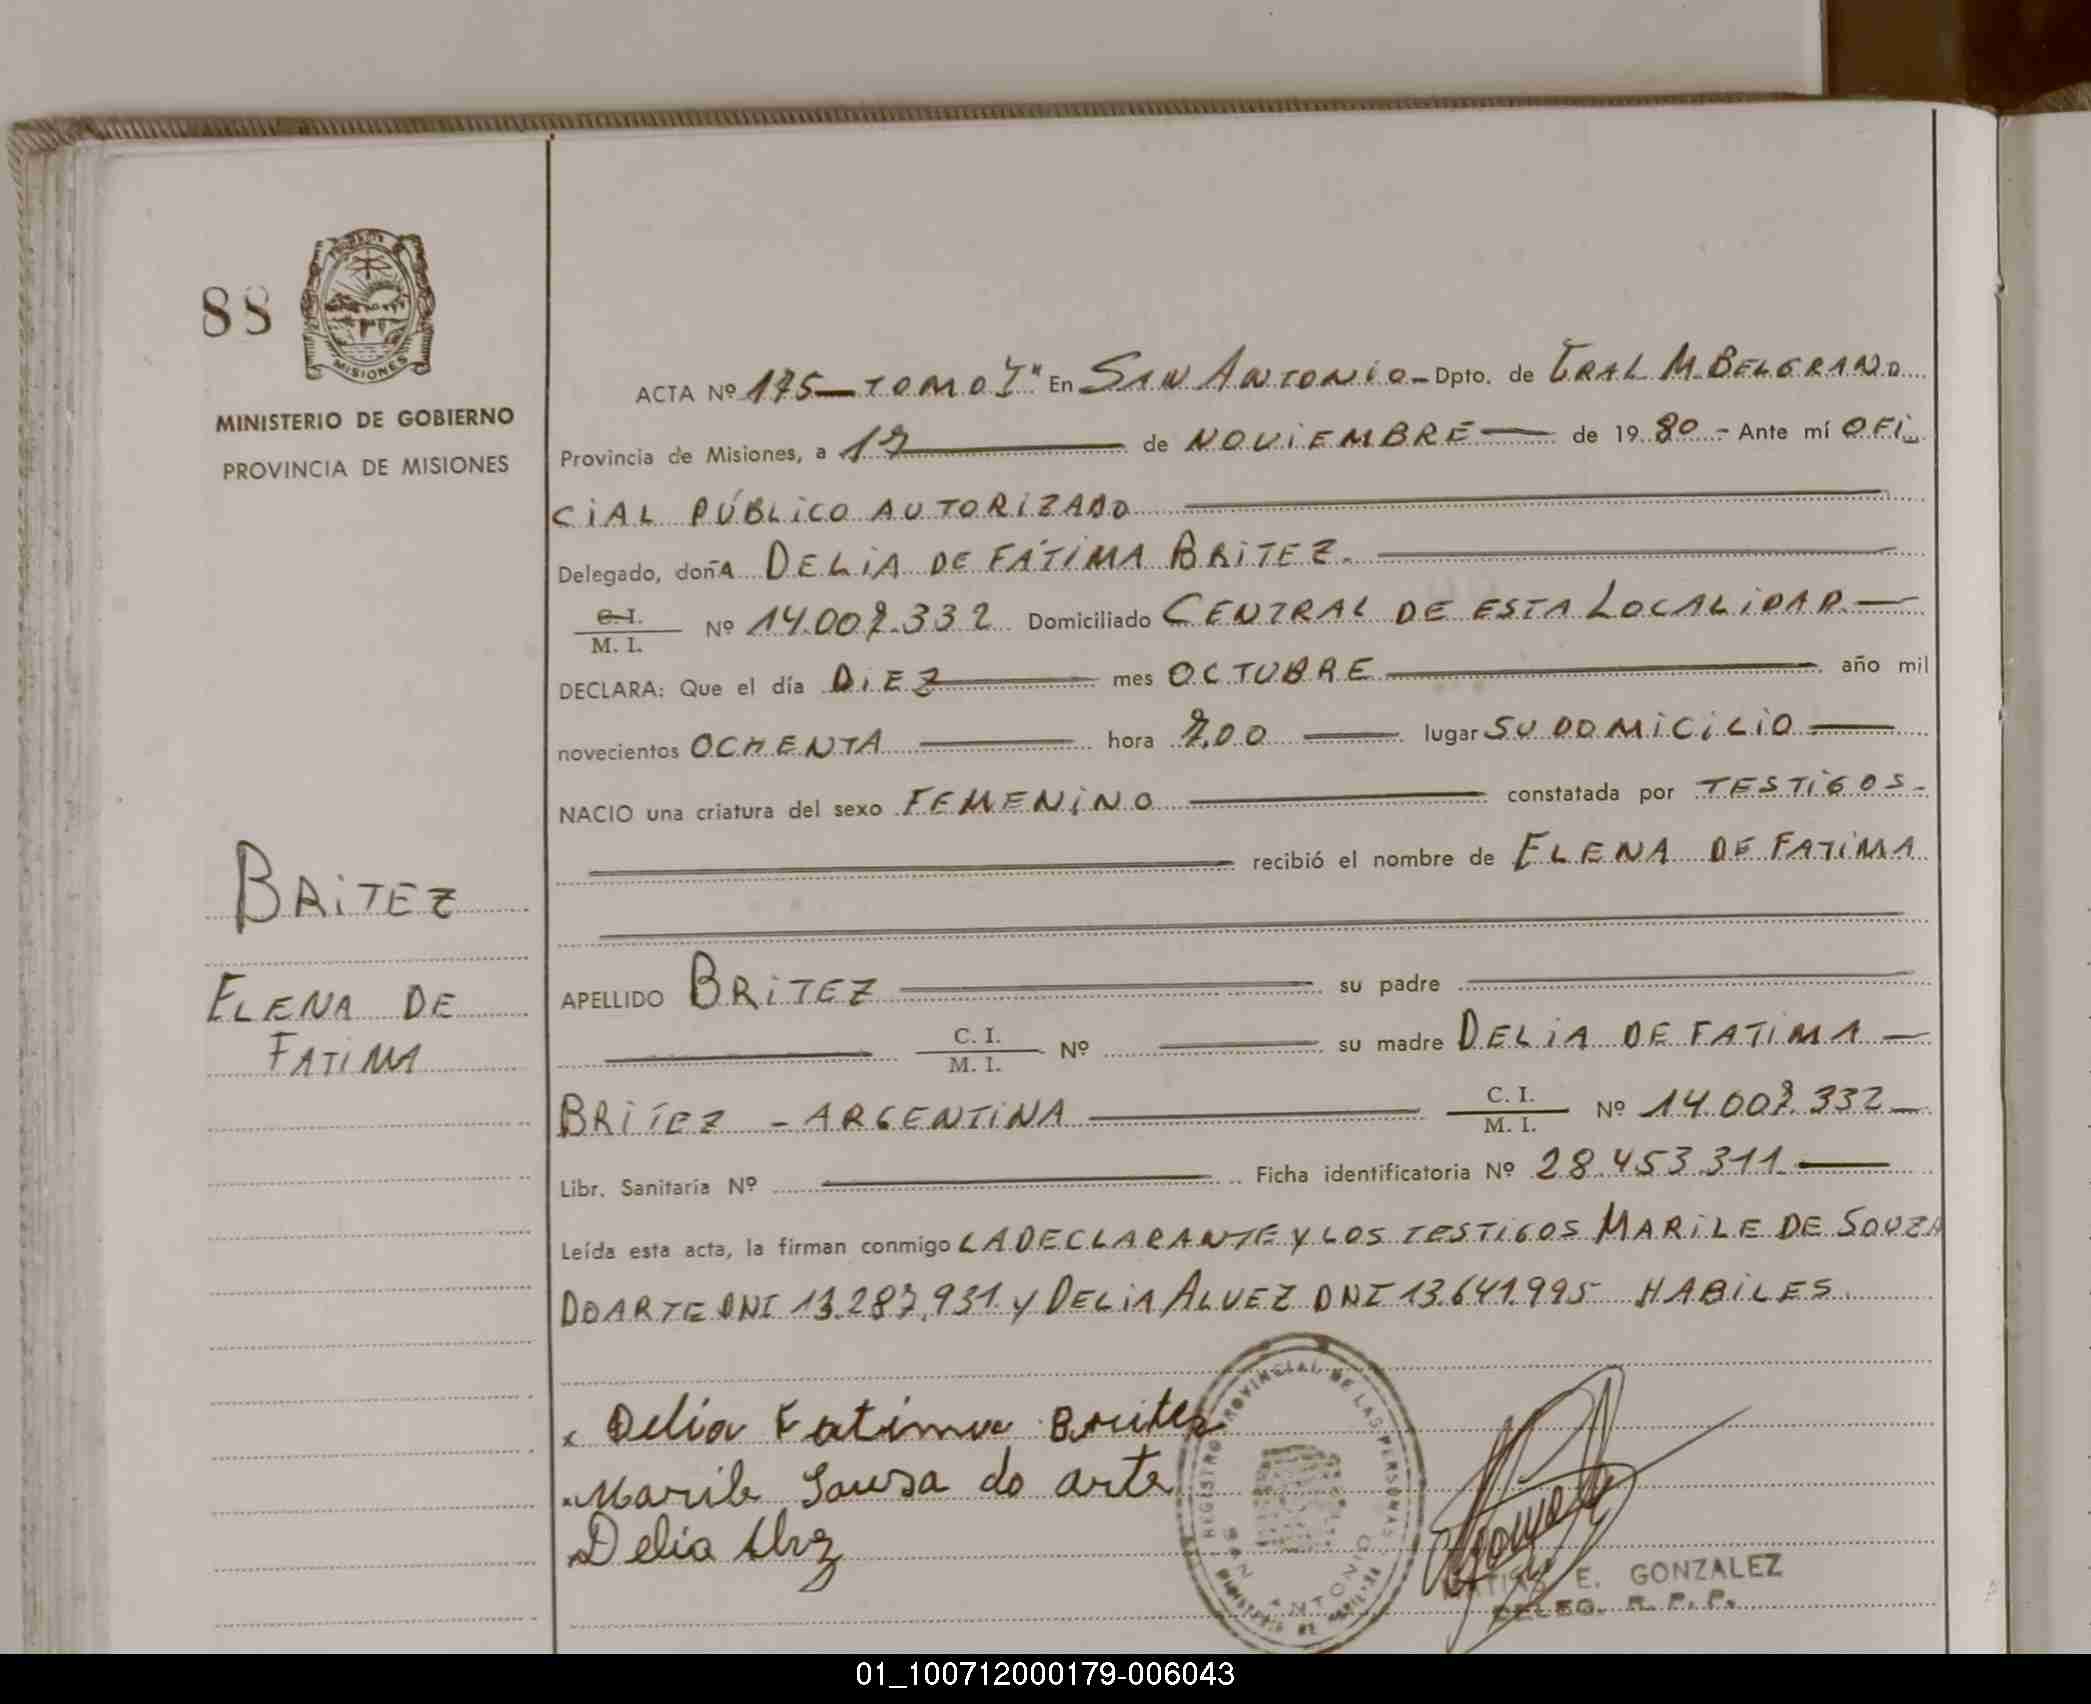 88
MISIONES
MINISTERIO DE GOBIERNO
PROVINCIA DE MISIONES
ACTA Nº 175 — TOMO I" En SAN ANTONIO - Dpto. de GRAL M. BELGRANO
Provincia de Misiones, a 17 de NOVIEMBRE — de 19 80 - Ante mí OFI
CIAL PÚBLICO AUTORIZADO
Delegado, doñA DELIA DE FÁTIMA BRITEZ.
C. I.
M. I. Nº 14.007.332 Domiciliado CENTRAL DE ESTA LOCALIDAD —
DECLARA: Que el día DIEZ — mes OCTUBRE — año mil
novecientos OCHENTA — hora 7.00 — lugar SU DOMICILIO —
NACIO una criatura del sexo FEMENINO — constatada por TESTIGOS -
recibió el nombre de ELENA DE FATIMA
BRITEZ
ELENA DE
FATIMA
APELLIDO BRITEZ — su padre
C. I.
M. I. Nº — su madre DELIA DE FATIMA —
BRITEZ - ARGENTINA — C. I.
M. I. Nº 14.007.332 —
Libr. Sanitaria Nº — Ficha identificatoria Nº 28.453.311 —
Leída esta acta, la firman conmigo LA DECLARANTE Y LOS TESTIGOS MARILE DE SOUZA
DOARTE DNI 13.287.931 Y DELIA ALVEZ DNI 13.641.995 HABILES.
x Delia Fatima Britez
x Marile Sousa do arte
Delia Alvz
REGISTRO PROVINCIAL DE LAS PERSONAS
SAN ANTONIO
E. GONZALEZ
DELEG. R. P. P.
01_100712000179-006043